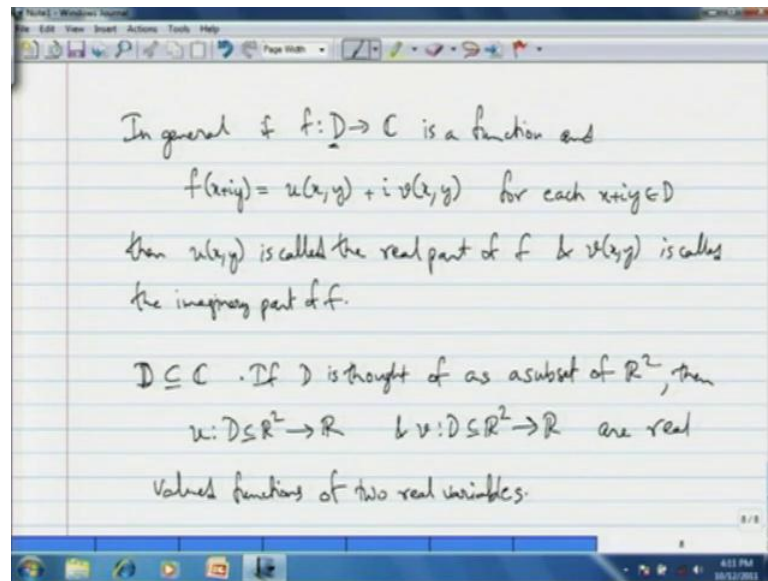 Note1 - Windows Journal
File Edit View Insert Actions Tools Help
Page Width
In general if f: D → C is a function and
f(x+iy) = u(x,y) + i v(x,y) for each x+iy ∈ D
then u(x,y) is called the real part of f & v(x,y) is called
the imaginary part of f.
D ⊆ C . If D is thought of as a subset of R², then
u: D ⊆ R² → R & v: D ⊆ R² → R are real
valued functions of two real variables.
8/8
8
4:11 PM
10/12/2011